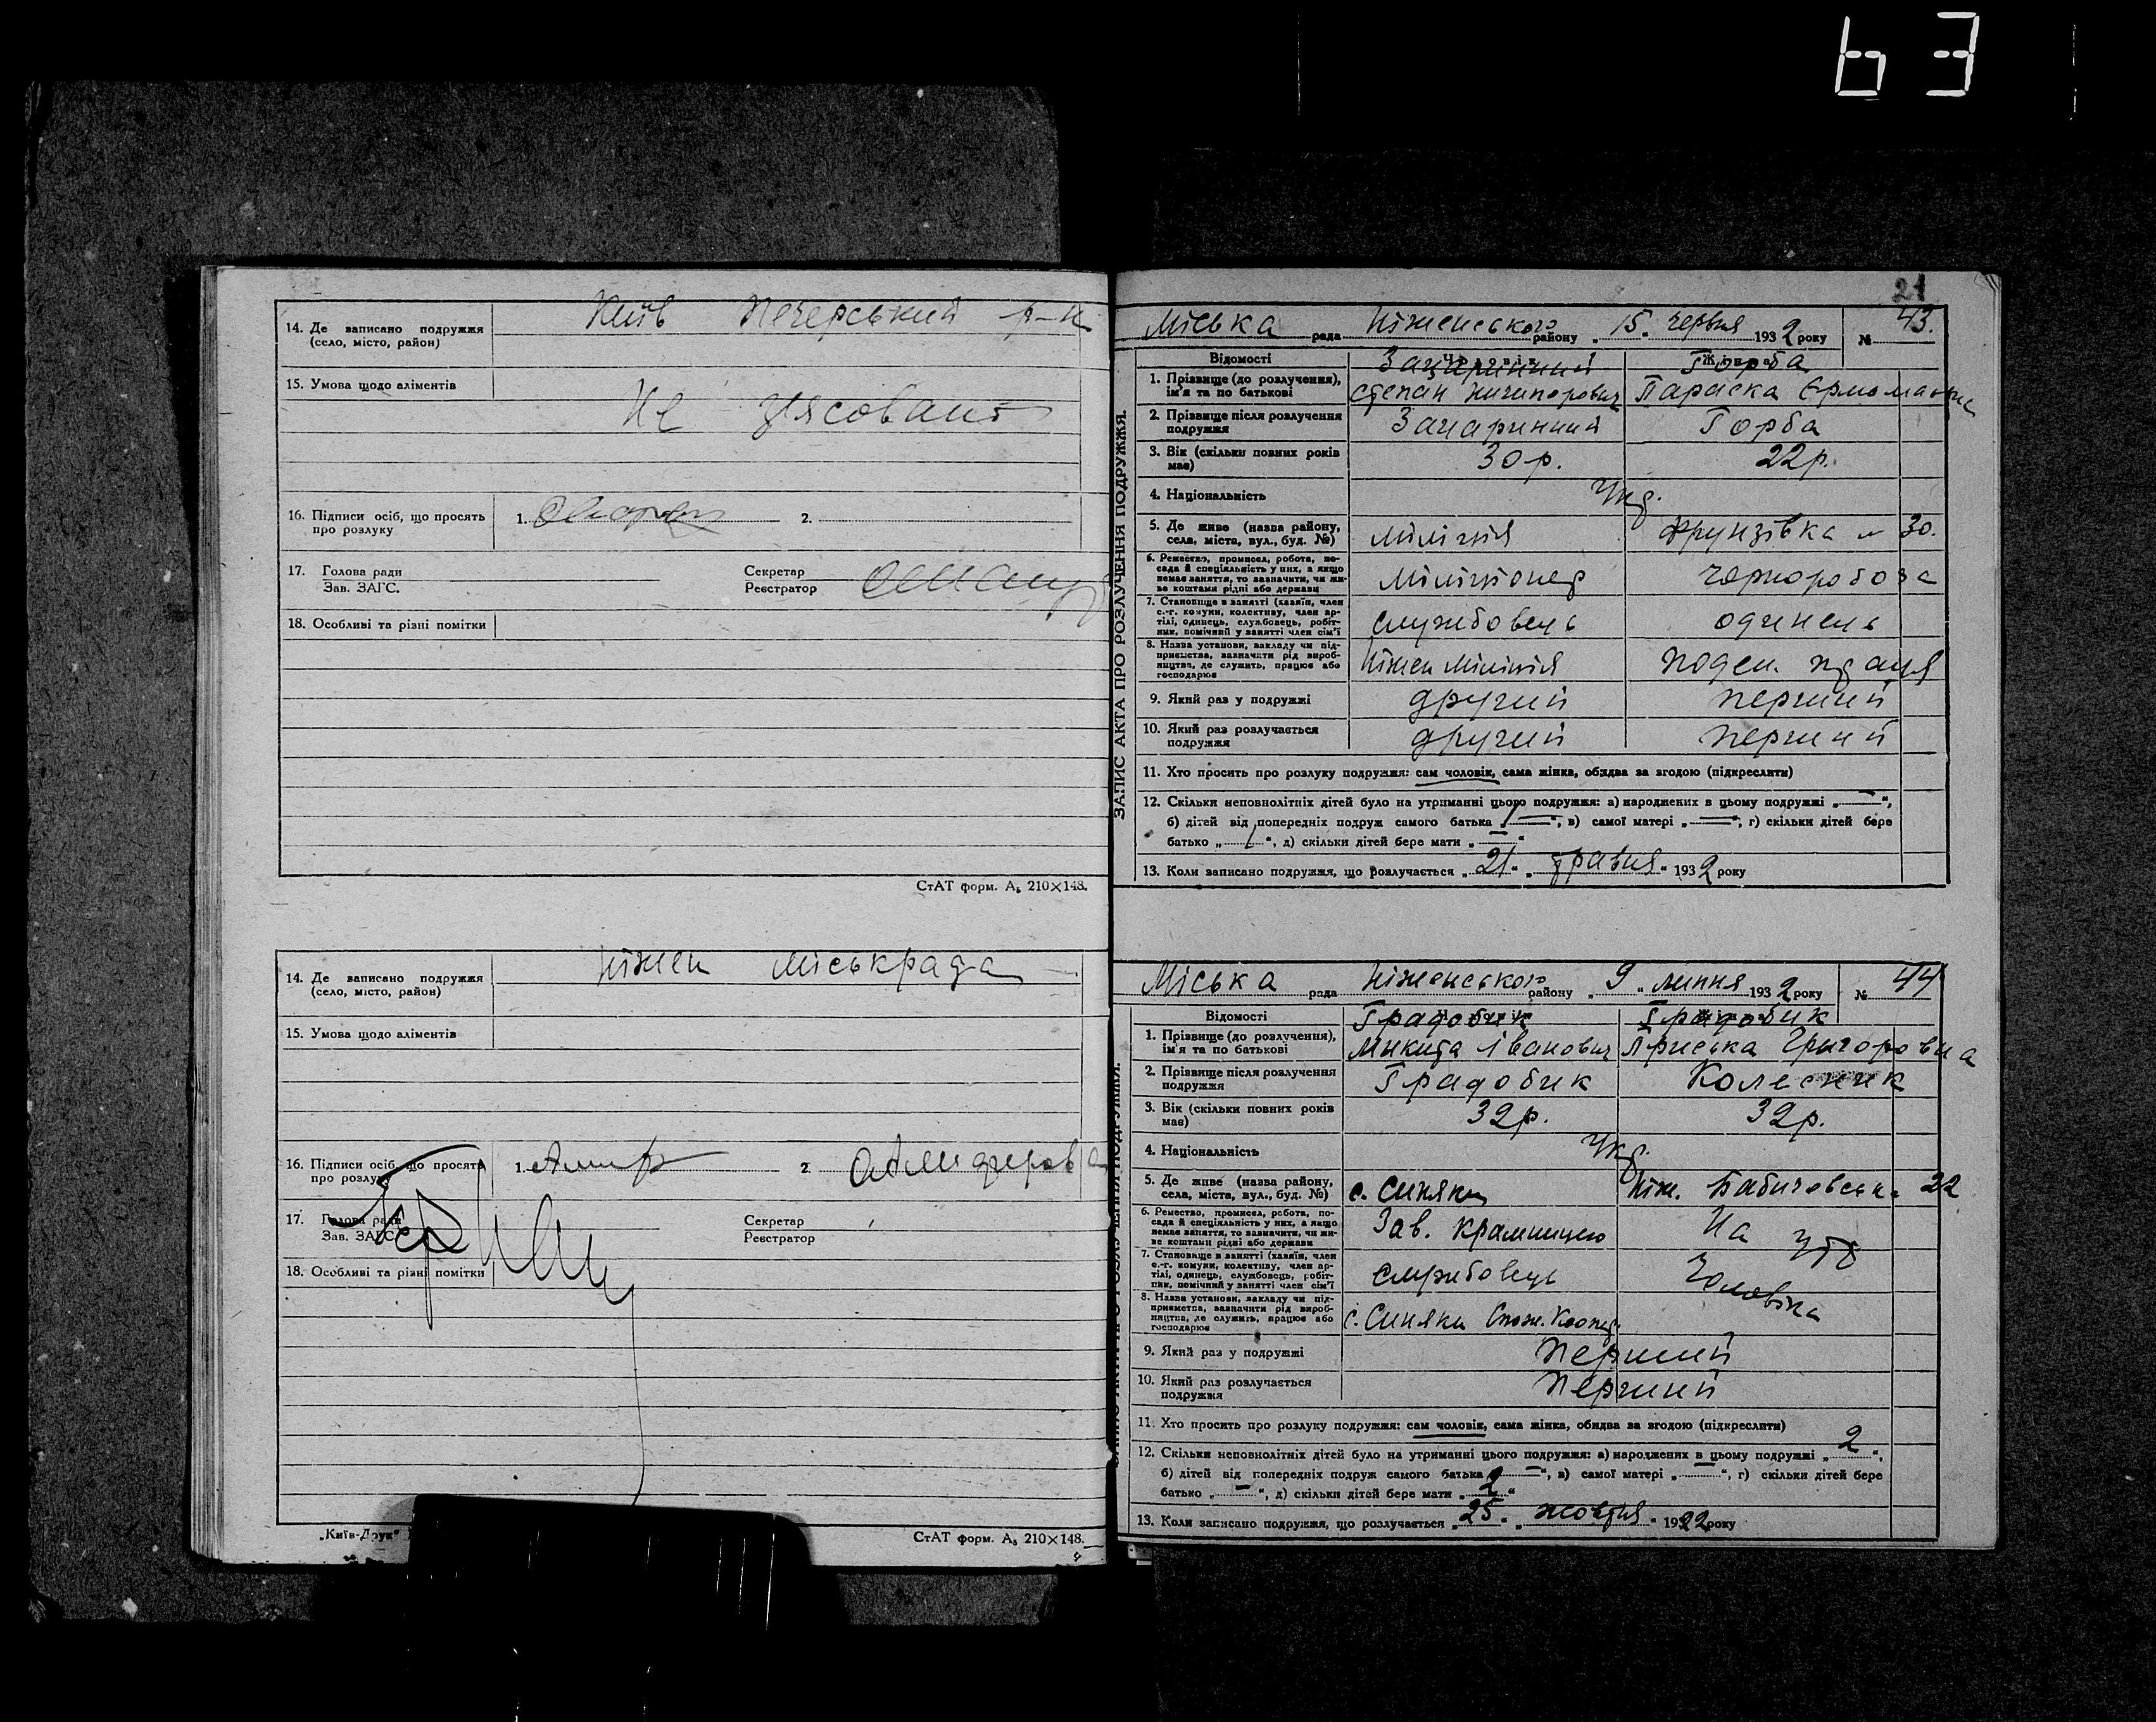 63
14. Де записано подружжя
(село, місто, район)
Київ Печерський р-н
15. Умова щодо аліментів
Не зясовані
16. Підписи осіб, що просять
про розлуку
1.
2.
17. Голова ради
Зав. ЗАГС.
Секретар
Реєстратор
18. Особливі та різні помітки
СтАТ форм. А₅ 210×148.
14. Де записано подружжя
(село, місто, район)
Ніжен міськрада
15. Умова щодо аліментів
16. Підписи осіб, що просять
про розлуку
1.
2.
17. Голова ради
Зав. ЗАГС.
Секретар
Реєстратор
18. Особливі та різні помітки
„Київ-Друк"
СтАТ форм. А₅ 210×148.
21
ЗАПИС АКТА ПРО РОЗЛУЧЕННЯ ПОДРУЖЖЯ.
Міська рада Ніженського району „15" червня 1932 року № 43.
Відомості Чоловік Жінка
Зачаринний Горба
1. Прізвище (до розлучення),
ім'я та по батькові
Степан Ничипорович Параска
2. Прізвище після розлучення
подружжя
Зачаринний Горба
3. Вік (скільки повних років
має)
30 р. 22 р.
4. Національність
Укр.
5. Де живе (назва району,
села, міста, вул., буд. №)
міліція Фрунзівка № 30.
6. Ремество, промисел, робота, по-
сада й спеціяльність у них, а якщо
немає заняття, то зазначити, чи жи-
ве коштами рідні або держави
міліціонер чорноробоча
7. Становище в занятті (хазяїн, член
с.-г. комуни, колективу, член ар-
тілі, одинець, службовець, робіт-
ник, помічний у занятті член сім'ї
службовець одинець
8. Назва установи, закладу чи під-
приємства, зазначити рід вироб-
ництва, де служить, працює або
господарює
Ніжен міліція поден. праця
9. Який раз у подружжі
другий перший
10. Який раз розлучається
подружжя
другий перший
11. Хто просить про розлуку подружжя: сам чоловік, сама жінка, обидва за згодою (підкреслити)
12. Скільки неповнолітніх дітей було на утриманні цього подружжя: а) народжених в цьому подружжі „—",
б) дітей від попередніх подруж самого батька „1", в) самої матері „—", г) скільки дітей бере
батько „1", д) скільки дітей бере мати „—"
13. Коли записано подружжя, що розлучається „21" „травня" 1932 року
Міська рада Ніженського району „9" липня 1932 року № 44
Відомості Чоловік Жінка
Градобик Градобик
1. Прізвище (до розлучення),
ім'я та по батькові
Микита Іванович Приська Григоровна
2. Прізвище після розлучення
подружжя
Градобик Колесник
3. Вік (скільки повних років
має)
32 р. 32 р.
4. Національність
Укр.
5. Де живе (назва району,
села, міста, вул., буд. №)
с. Синяки Ніж. Бабичовськ. 22
6. Ремество, промисел, робота, по-
сада й спеціяльність у них, а якщо
немає заняття, то зазначити, чи жи-
ве коштами рідні або держави
Зав. крамницею На утр
7. Становище в занятті (хазяїн, член
с.-г. комуни, колективу, член ар-
тілі, одинець, службовець, робіт-
ник, помічний у занятті член сім'ї
службовець Чоловіка
8. Назва установи, закладу чи під-
приємства, зазначити рід вироб-
ництва, де служить, працює або
господарює
с. Синяки Спож. Кооп.
9. Який раз у подружжі
перший
10. Який раз розлучається
подружжя
перший
11. Хто просить про розлуку подружжя: сам чоловік, сама жінка, обидва за згодою (підкреслити)
12. Скільки неповнолітніх дітей було на утриманні цього подружжя: а) народжених в цьому подружжі „2",
б) дітей від попередніх подруж самого батька „—", в) самої матері „", г) скільки дітей бере
батько „—", д) скільки дітей бере мати „2"
13. Коли записано подружжя, що розлучається „25" „жовтня" 1922 року